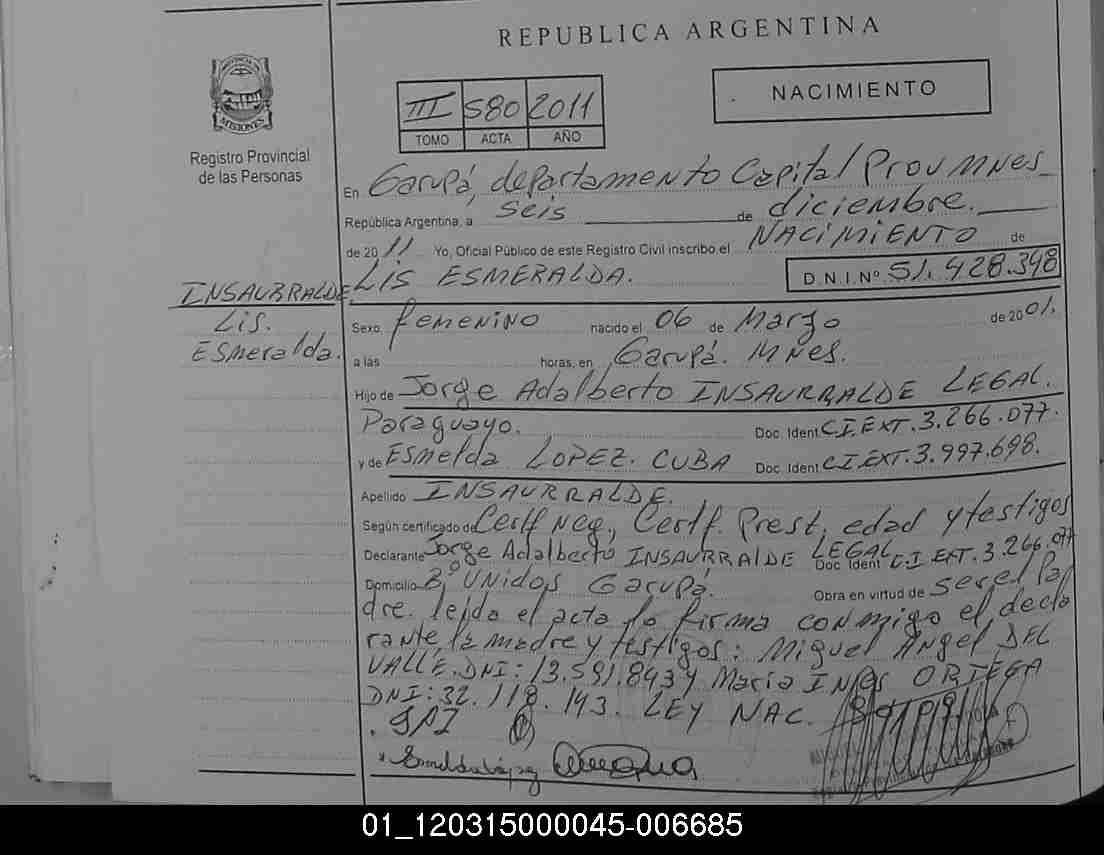 REPUBLICA ARGENTINA
MISIONES
Registro Provincial
de las Personas
III 580 2011
TOMO ACTA AÑO
NACIMIENTO
En Garupá, departamento Capital Prov MNES
República Argentina, a seis de diciembre.
de 2011 Yo, Oficial Público de este Registro Civil inscribo el NACIMIENTO de
LIS ESMERALDA. D.N.I.Nº 51.428.398
INSAURRALDE
LIS.
ESmeralda.
Sexo femenino nacido el 06 de Marzo de 2001.
a las horas, en Garupá. MNES.
Hijo de Jorge Adalberto INSAURRALDE LEGAL.
Paraguayo. Doc. Ident CI.EXT.3.266.077.
y de ESmelda LOPEZ. CUBA Doc. Ident CI.EXT.3.997.698.
Apellido INSAURRALDE.
Según certificado de Certf Neg, Certf. Prest. edad y testigos
Declarante Jorge Adalberto INSAURRALDE LEGAL Doc Ident C.I EXT.3.266.077
Domicilio Bº UNidos Garupá. Obra en virtud de ser el Pa
dre. leida el acta la firma conmigo el decla
rante, la madre y testigos: Miguel Angel DEL
VALLE.DNI: 13.591.843 y Maria INES ORTEGA
DNI: 32.118.193. LEY NAC.
Esmelda López
01_120315000045-006685